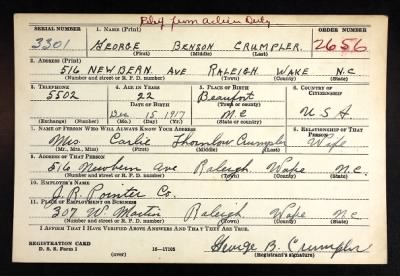 Relief from Active Duty
SERIAL NUMBER 1. NAME (Print) ORDER NUMBER
3301 GEORGE BENSON CRUMPLER. 2656
(First) (Middle) (Last)
2. ADDRESS (Print)
516 NEW BERN AVE RALEIGH WAKE N.C
(Number and street or R. F. D. number) (Town) (County) (State)
3. TELEPHONE 4. AGE IN YEARS 5. PLACE OF BIRTH 6. COUNTRY OF CITIZENSHIP
5502 22 Beaufort
DATE OF BIRTH (Town or county)
Dec 15 1917 N.C USA
(Exchange) (Number) (Mo.) (Day) (Yr.) (State or country)
7. NAME OF PERSON WHO WILL ALWAYS KNOW YOUR ADDRESS 8. RELATIONSHIP OF THAT PERSON
Mrs Carlie Crumpler Wife
(Mr., Mrs., Miss) (First) (Middle) (Last)
9. ADDRESS OF THAT PERSON
516 Newbern Ave Raleigh Wake N.C.
(Number and street or R. F. D. number) (Town) (County) (State)
10. EMPLOYER'S NAME
Pointer Co.
11. PLACE OF EMPLOYMENT OR BUSINESS
307 W Martin Raleigh Wake N C
(Number and street or R. F. D. number) (Town) (County) (State)
I AFFIRM THAT I HAVE VERIFIED ABOVE ANSWERS AND THAT THEY ARE TRUE.
REGISTRATION CARD George B. Crumpler
D. S. S. Form 1 16-17105 (Registrant's signature)